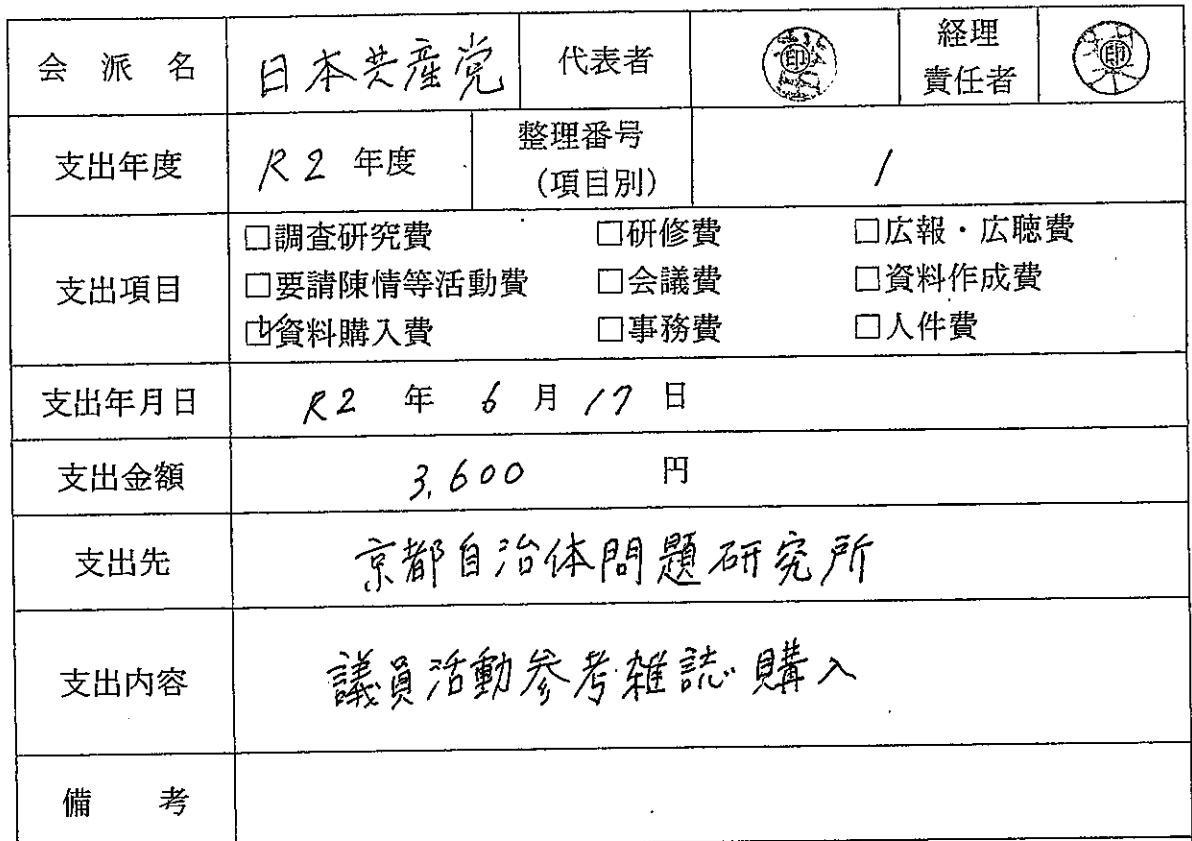 会 派 名 日本共産党 代表者 印 経理責任者 印
支出年度 R2 年度 整理番号(項目別) 1
支出項目
□調査研究費 □研修費 □広報・広聴費
□要請陳情等活動費 □会議費 □資料作成費
☑資料購入費 □事務費 □人件費
支出年月日 R2 年 6 月 17 日
支出金額 3,600 円
支出先 京都自治体問題研究所
支出内容 議員活動参考雑誌購入
備 考